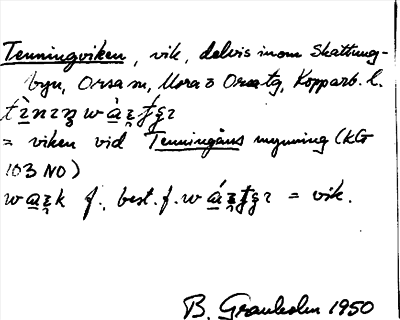 Tenningviken, vik, delvis inom Skattung-
byn, Orsa sn, Mora o Orsa tg, Kopparb. l.
= viken vid Tenningåns mynning (KG
103 NO)
f., best. f. = vik.
B. Granholm 1950